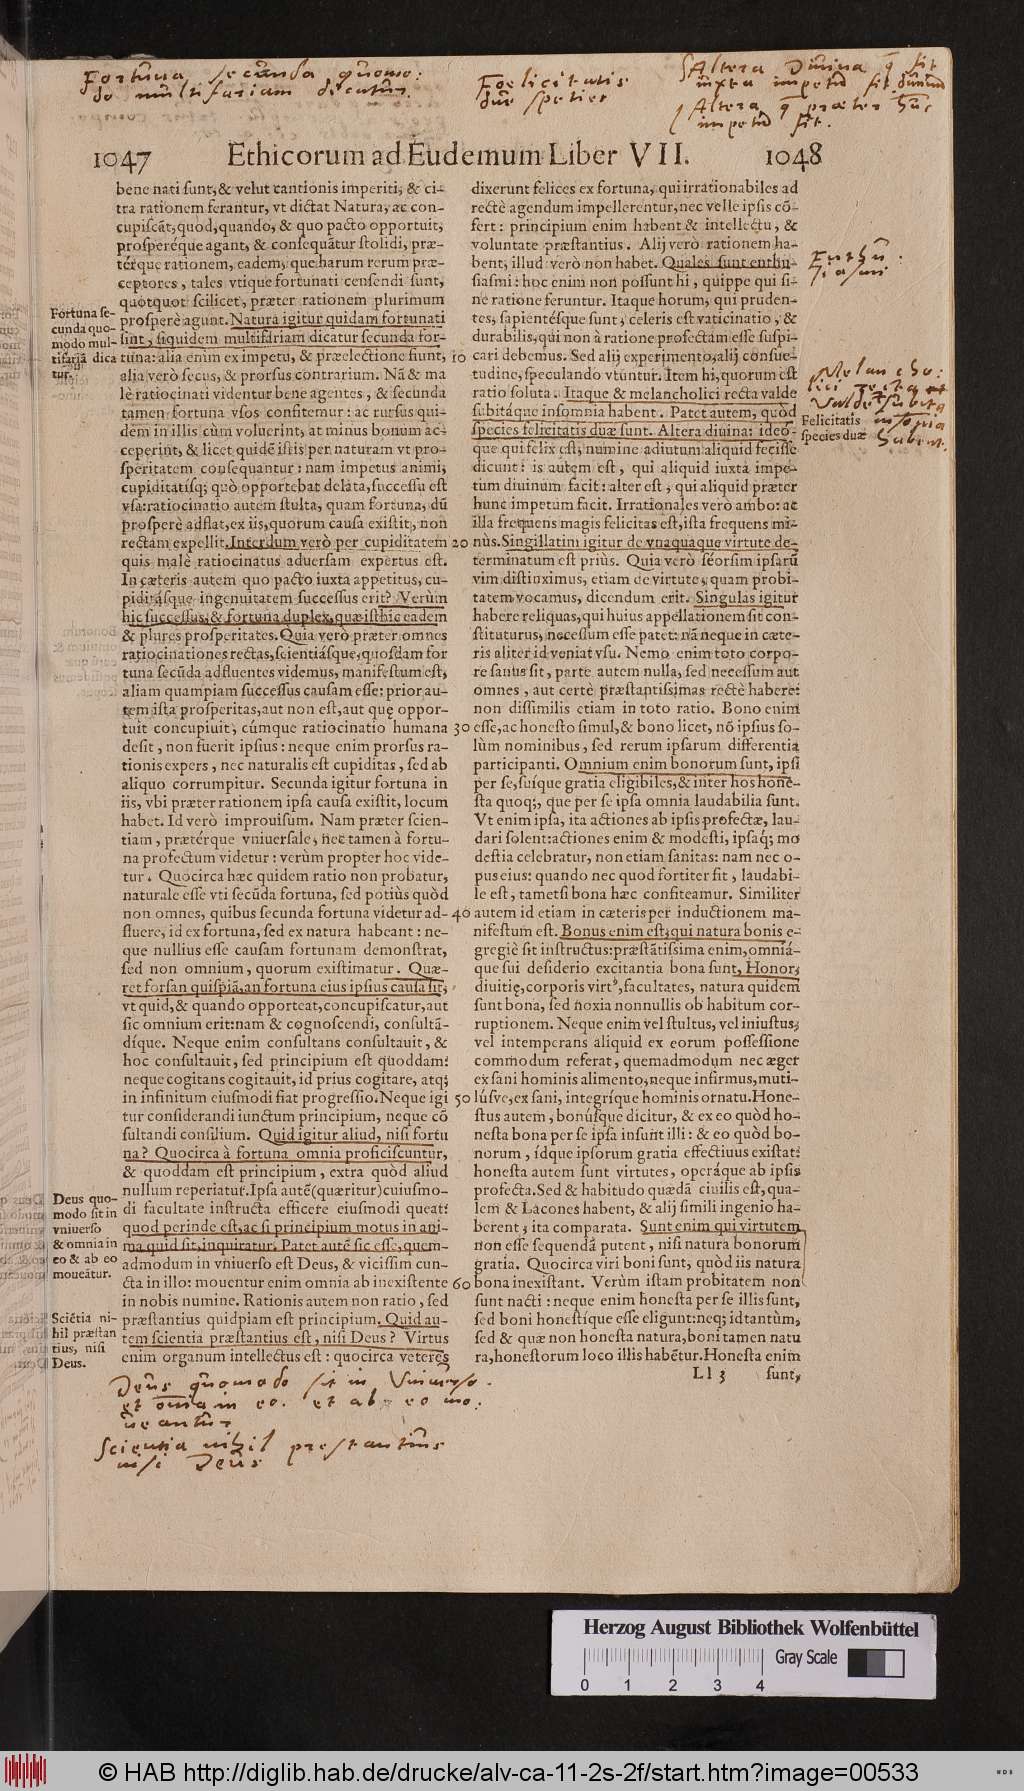 Fortuna secunda quomo:
do multifariam dicatur.
Foelicitatis
duæ species
Altera Divina q̃ fit
iuxta impetũ fit divinũ
Altera q̃ præter hũc
impetũ fit.
1047 Ethicorum ad Eudemum Liber VII. 1048
bene nati sunt, & velut cantionis imperiti, & ci-
tra rationem ferantur, vt dictat Natura, ac con-
cupiscãt, quod, quando, & quo pacto oportuit,
prosperéque agant, & consequãtur stolidi, præ-
térque rationem, eadem, que harum rerum præ-
ceptores, tales vtique fortunati censendi sunt,
quotquot scilicet, præter rationem plurimum
prosperè agunt. Natura igitur quidam fortunati
sint, siquidem multifáriam dicatur secunda for-
tuna: alia enim ex impetu, & præelectione fiunt,
alia verò secus, & prorsus contrarium. Nã & ma
lè ratiocinati videntur bene agentes, & secunda
tamen fortuna vsos confitemur: ac rursus qui-
dem in illis cùm voluerint, at minus bonum ac-
ceperint, & licet quidẽ istis per naturam vt pro-
speritatem consequantur: nam impetus animi,
cupiditatisq; quò opportebat delata, successu est
vsa: ratiocinatio autem stulta, quam fortuna, dũ
prosperè adflat, ex iis, quorum causa existit, non
rectam expellit. Interdum verò per cupiditatem
quis malè ratiocinatus aduersam expertus est.
In cæteris autem quo pacto iuxta appetitus, cu-
piditásque ingenuitatem successus erit? Verùm
hic successus, & fortuna duplex, quæ isthic eadem
& plures prosperitates. Quia verò præter omnes
ratiocinationes rectas, scientiásque, quosdam for
tuna secũda adfluentes videmus, manifestum est,
aliam quampiam successus causam esse: prior au-
tem ista prosperitas, aut non est, aut quę oppor-
tuit concupiuit, cúmque ratiocinatio humana
desit, non fuerit ipsius: neque enim prorsus ra-
tionis expers, nec naturalis est cupiditas, sed ab
aliquo corrumpitur. Secunda igitur fortuna in
iis, vbi præter rationem ipsa causa existit, locum
habet. Id verò improuisum. Nam præter scien-
tiam, prætérque vniuersale, nec tamen à fortu-
na profectum videtur: verùm propter hoc vide-
tur. Quocirca hæc quidem ratio non probatur,
naturale esse vti secũda fortuna, sed potiùs quòd
non omnes, quibus secunda fortuna videtur ad-
fluere, id ex fortuna, sed ex natura habeant: ne-
que nullius esse causam fortunam demonstrat,
sed non omnium, quorum existimatur. Quæ-
ret forsan quispiã, an fortuna eius ipsius causa sit,
vt quid, & quando opporteat, concupiscatur, aut
sic omnium erit: nam & cognoscendi, consultã-
díque. Neque enim consultans consultauit, &
hoc consultauit, sed principium est quoddam:
neque cogitans cogitauit, id prius cogitare, atq;
in infinitum eiusmodi fiat progressio. Neque igi
tur considerandi iunctum principium, neque cõ
sultandi consilium. Quid igitur aliud, nisi fortu
na? Quocirca à fortuna omnia proficiscuntur,
& quoddam est principium, extra quòd aliud
nullum reperiatur. Ipsa autẽ (quæritur) cuiusmo-
di facultate instructa efficere eiusmodi queat:
quod perinde est, ac si principium motus in ani-
ma quid sit, inquiratur. Patet autẽ sic esse, quem-
admodum in vniuerso est Deus, & vicissim cun-
cta in illo: mouentur enim omnia ab inexistente
in nobis numine. Rationis autem non ratio, sed
præstantius quidpiam est principium. Quid au-
tem scientia præstantius est, nisi Deus? Virtus
enim organum intellectus est: quocirca veteres
Fortuna se-
cunda quo-
modo mul-
tifariã dica
tur.
Deus quo-
modo sit in
vniuerso
& omnia in
eo & ab eo
moueãtur.
Sciẽtia ni-
hil præstan
tius, nisi
Deus.
10
20
30
40
50
60
dixerunt felices ex fortuna, qui irrationabiles ad
rectè agendum impellerentur, nec velle ipsis cõ-
fert: principium enim habent & intellectu, &
voluntate præstantius. Alij verò rationem ha-
bent, illud verò non habet. Quales sunt enthu-
siasmi: hoc enim non possunt hi, quippe qui si-
ne ratione feruntur. Itaque horum, qui pruden-
tes, sapientésque sunt, celeris est vaticinatio, &
durabilis, qui non à ratione profectam esse suspi-
cari debemus. Sed alij experimento, alij consue-
tudine, speculando vtuntur. Item hi, quorum est
ratio soluta. Itaque & melancholici recta valde
subitáque insomnia habent. Patet autem, quòd
species felicitatis duæ sunt. Altera diuina: ideó-
que qui felix est, numine adiutum aliquid fecisse
dicunt: is autem est, qui aliquid iuxta impe-
tum diuinum facit: alter est, qui aliquid præter
hunc impetum facit. Irrationales verò ambo: ac
illa frequens magis felicitas est, ista frequens mi-
nùs. Singillatim igitur de vnaquaque virtute de-
terminatum est priùs. Quia verò seorsim ipsarũ
vim distinximus, etiam de virtute, quam probi-
tatem vocamus, dicendum erit. Singulas igitur
habere reliquas, qui huius appellationem sit con-
stituturus, necessum esse patet: nã neque in cæte-
ris aliter id veniat vsu. Nemo enim toto corpo-
re sanus sit, parte autem nulla, sed necessum aut
omnes, aut certè præstantissimas rectè habere:
non dissimilis etiam in toto ratio. Bono enim
esse, ac honesto simul, & bono licet, nõ ipsius so-
lùm nominibus, sed rerum ipsarum differentia
participanti. Omnium enim bonorum sunt, ipsi
per se, suíque gratia eligibiles, & inter hos hone-
sta quoq;, que per se ipsa omnia laudabilia sunt.
Vt enim ipsa, ita actiones ab ipsis profectæ, lau-
dari solent: actiones enim & modesti, ipsaq́; mo
destia celebratur, non etiam sanitas: nam nec o-
pus eius: quando nec quod fortiter sit, laudabi-
le est, tametsi bona hæc confiteamur. Similiter
autem id etiam in cæteris per inductionem ma-
nifestum est. Bonus enim est, qui natura bonis e-
gregiè sit instructus: præstãtissima enim, omniá-
que sui desiderio excitantia bona sunt, Honor,
diuitię, corporis virtꝰ, facultates, natura quidem
sunt bona, sed noxia nonnullis ob habitum cor-
ruptionem. Neque enim vel stultus, vel iniustus,
vel intemperans aliquid ex eorum possessione
commodum referat, quemadmodum nec æger
ex sani hominis alimento, neque infirmus, muti-
lúsve, ex sani, integríque hominis ornatu. Hone-
stus autem, bonúsque dicitur, & ex eo quòd ho-
nesta bona per se ipsa insunt illi: & eo quòd bo-
norum, ídque ipsorum gratia effectiuus existat:
honesta autem sunt virtutes, operáque ab ipsis
profecta. Sed & habitudo quædã ciuilis est, qua-
lem & Lacones habent, & alij simili ingenio ha-
berent, ita comparata. Sunt enim qui virtutem
non esse sequendã putent, nisi natura bonorum
gratia. Quocirca viri boni sunt, quòd iis natura
bona inexistant. Verùm istam probitatem non
sunt nacti: neque enim honesta per se illis sunt,
sed boni honestíque esse eligunt: neq; idtantùm,
sed & quæ non honesta natura, boni tamen natu
ra, honestorum loco illis habẽtur. Honesta enim
Ll 3 sunt,
Enthu:
siasmi
Melancho:
lici recta et
valde subita
insomnia
habent.
Felicitatis
species duæ
Deus quomodo sit in Vniverso.
et omnia in eo. et ab eo mo:
ueantur
Scientia nihil prestantius
nisi Deus
Herzog August Bibliothek Wolfenbüttel
Gray Scale
0 1 2 3 4
© HAB http://diglib.hab.de/drucke/alv-ca-11-2s-2f/start.htm?image=00533